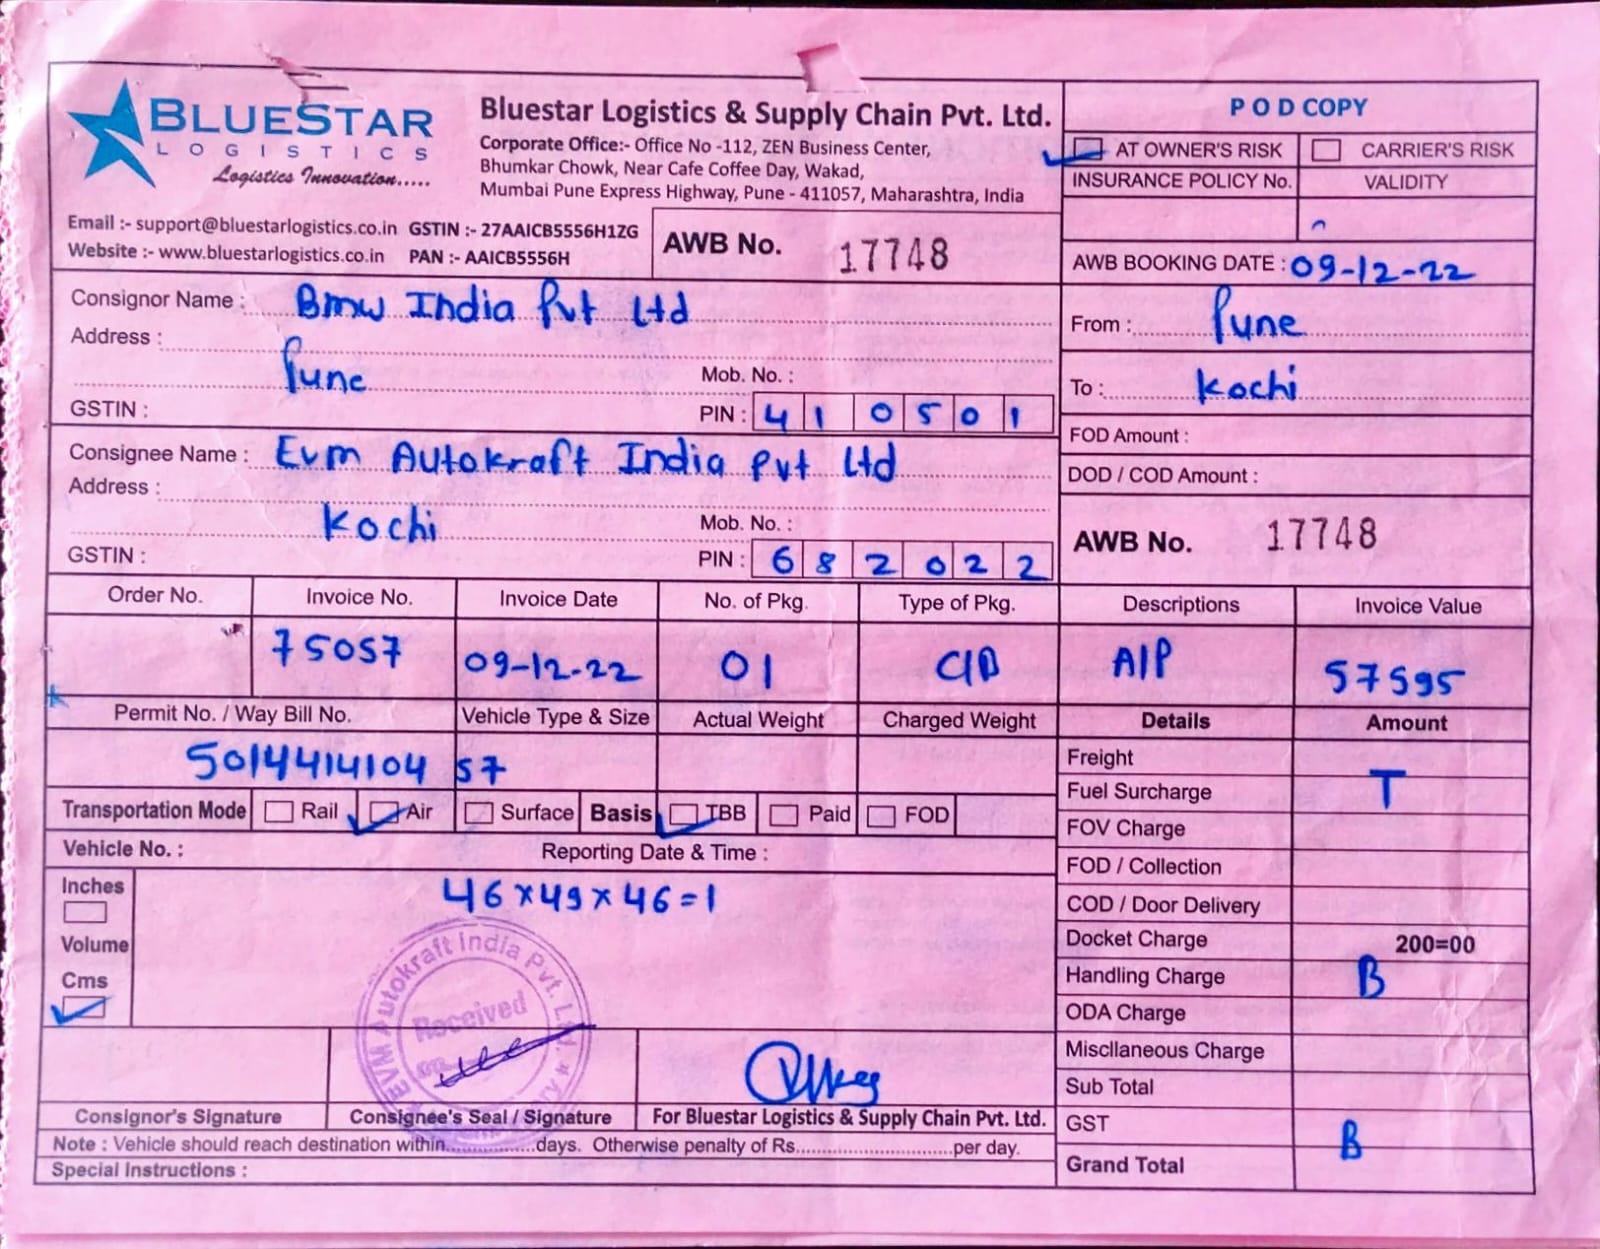 BLUESTAR
LOGISTICS
Logistics Innovation.....
Bluestar Logistics & Supply Chain Pvt. Ltd.
Corporate Office:- Office No -112, ZEN Business Center,
Bhumkar Chowk, Near Cafe Coffee Day, Wakad,
Mumbai Pune Express Highway, Pune - 411057, Maharashtra, India
Email :- support@bluestarlogistics.co.in GSTIN :- 27AAICB5556H1ZG
Website :- www.bluestarlogistics.co.in PAN :- AAICB5556H
AWB No. 17748
POD COPY
AT OWNER'S RISK CARRIER'S RISK
INSURANCE POLICY No. VALIDITY
AWB BOOKING DATE : 09-12-22
Consignor Name : Bmw India Pvt Ltd
Address :
Pune Mob. No. :
GSTIN : PIN : 410501
From : Pune
To : Kochi
Consignee Name : Evm Autokraft India Pvt Ltd
Address :
Kochi Mob. No. :
GSTIN : PIN : 682022
FOD Amount :
DOD / COD Amount :
AWB No. 17748
Order No. Invoice No. Invoice Date No. of Pkg. Type of Pkg. Descriptions Invoice Value
75057 09-12-22 01 C/B A/P 57595
Permit No. / Way Bill No. Vehicle Type & Size Actual Weight Charged Weight Details Amount
501441410457
Transportation Mode Rail Air Surface Basis TBB Paid FOD
Vehicle No. : Reporting Date & Time :
Inches
Volume
Cms
46x49x46=1
Freight
Fuel Surcharge T
FOV Charge
FOD / Collection
COD / Door Delivery
Docket Charge 200=00
Handling Charge B
ODA Charge
Miscllaneous Charge
Sub Total
GST
B
Grand Total
EVM Autokraft India Pvt. Ltd.
Received
Consignor's Signature Consignee's Seal / Signature For Bluestar Logistics & Supply Chain Pvt. Ltd.
Note : Vehicle should reach destination within...............days. Otherwise penalty of Rs............................per day.
Special Instructions :